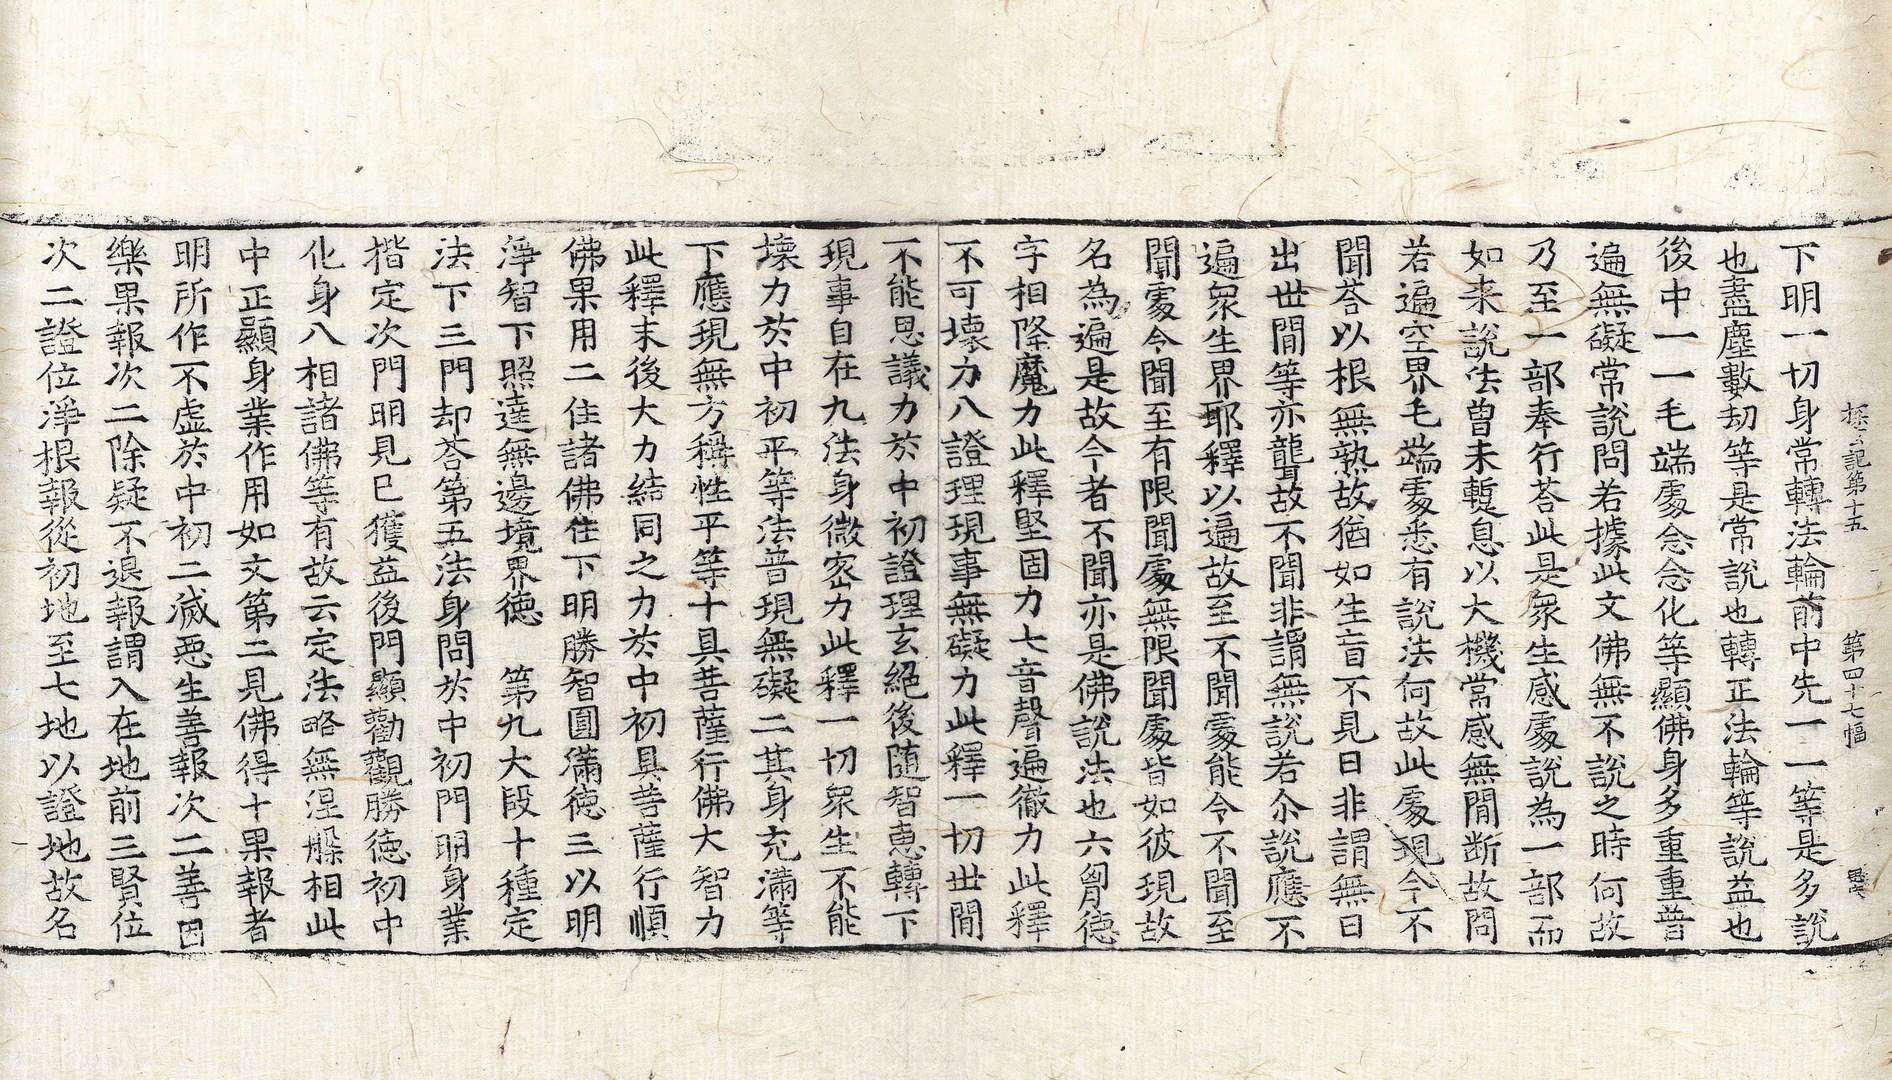 探玄記第十五 第四十七幅
下明一切身常轉法輪前中先一一等是多說
也盡塵數劫等是常說也轉正法輪等說益也
後中一一毛端處念念化等顯佛身多重重普
遍無礙常說問若據此文佛無不說之時何故
乃至一部奉行荅此是衆生感處說為一部而
如来說法曾未蹔息以大機常感無間断故問
若遍空界毛端處悉有說法何故此處現今不
聞荅以根無熟故猶如生盲不見日非謂無日
出世間等亦聾故不聞非謂無說若尒說應不
遍衆生界耶釋以遍故至不聞處能令不聞至
聞處令聞至有限聞處無限聞處皆如彼現故
名為遍是故今者不聞亦是佛說法也六胷德
字相降魔力此釋堅固力七音聲遍徹力此釋
不可壞力八證理現事無礙力此釋一切世間
不能思議力於中初證理玄絕後随智惠轉下
現事自在九法身微密力此釋一切衆生不能
壞力於中初平等法普現無礙二其身充滿等
下應現無方稱性平等十具菩薩行佛大智力
此釋末後大力結同之力於中初具菩薩行順
佛果用二住諸佛住下明勝智圓滿德三以明
淨智下照達無邊境界德 第九大段十種定
法下三門却荅第五法身問於中初門明身業
揩定次門明見已獲益後門顯勸觀勝德初中
化身八相諸佛等有故云定法略無涅槃相此
中正顯身業作用如文第二見佛得十果報者
明所作不虛於中初二滅惡生善報次二善因
樂果報次二除疑不退報謂入在地前三賢位
次二證位淨根報從初地至七地以證地故名